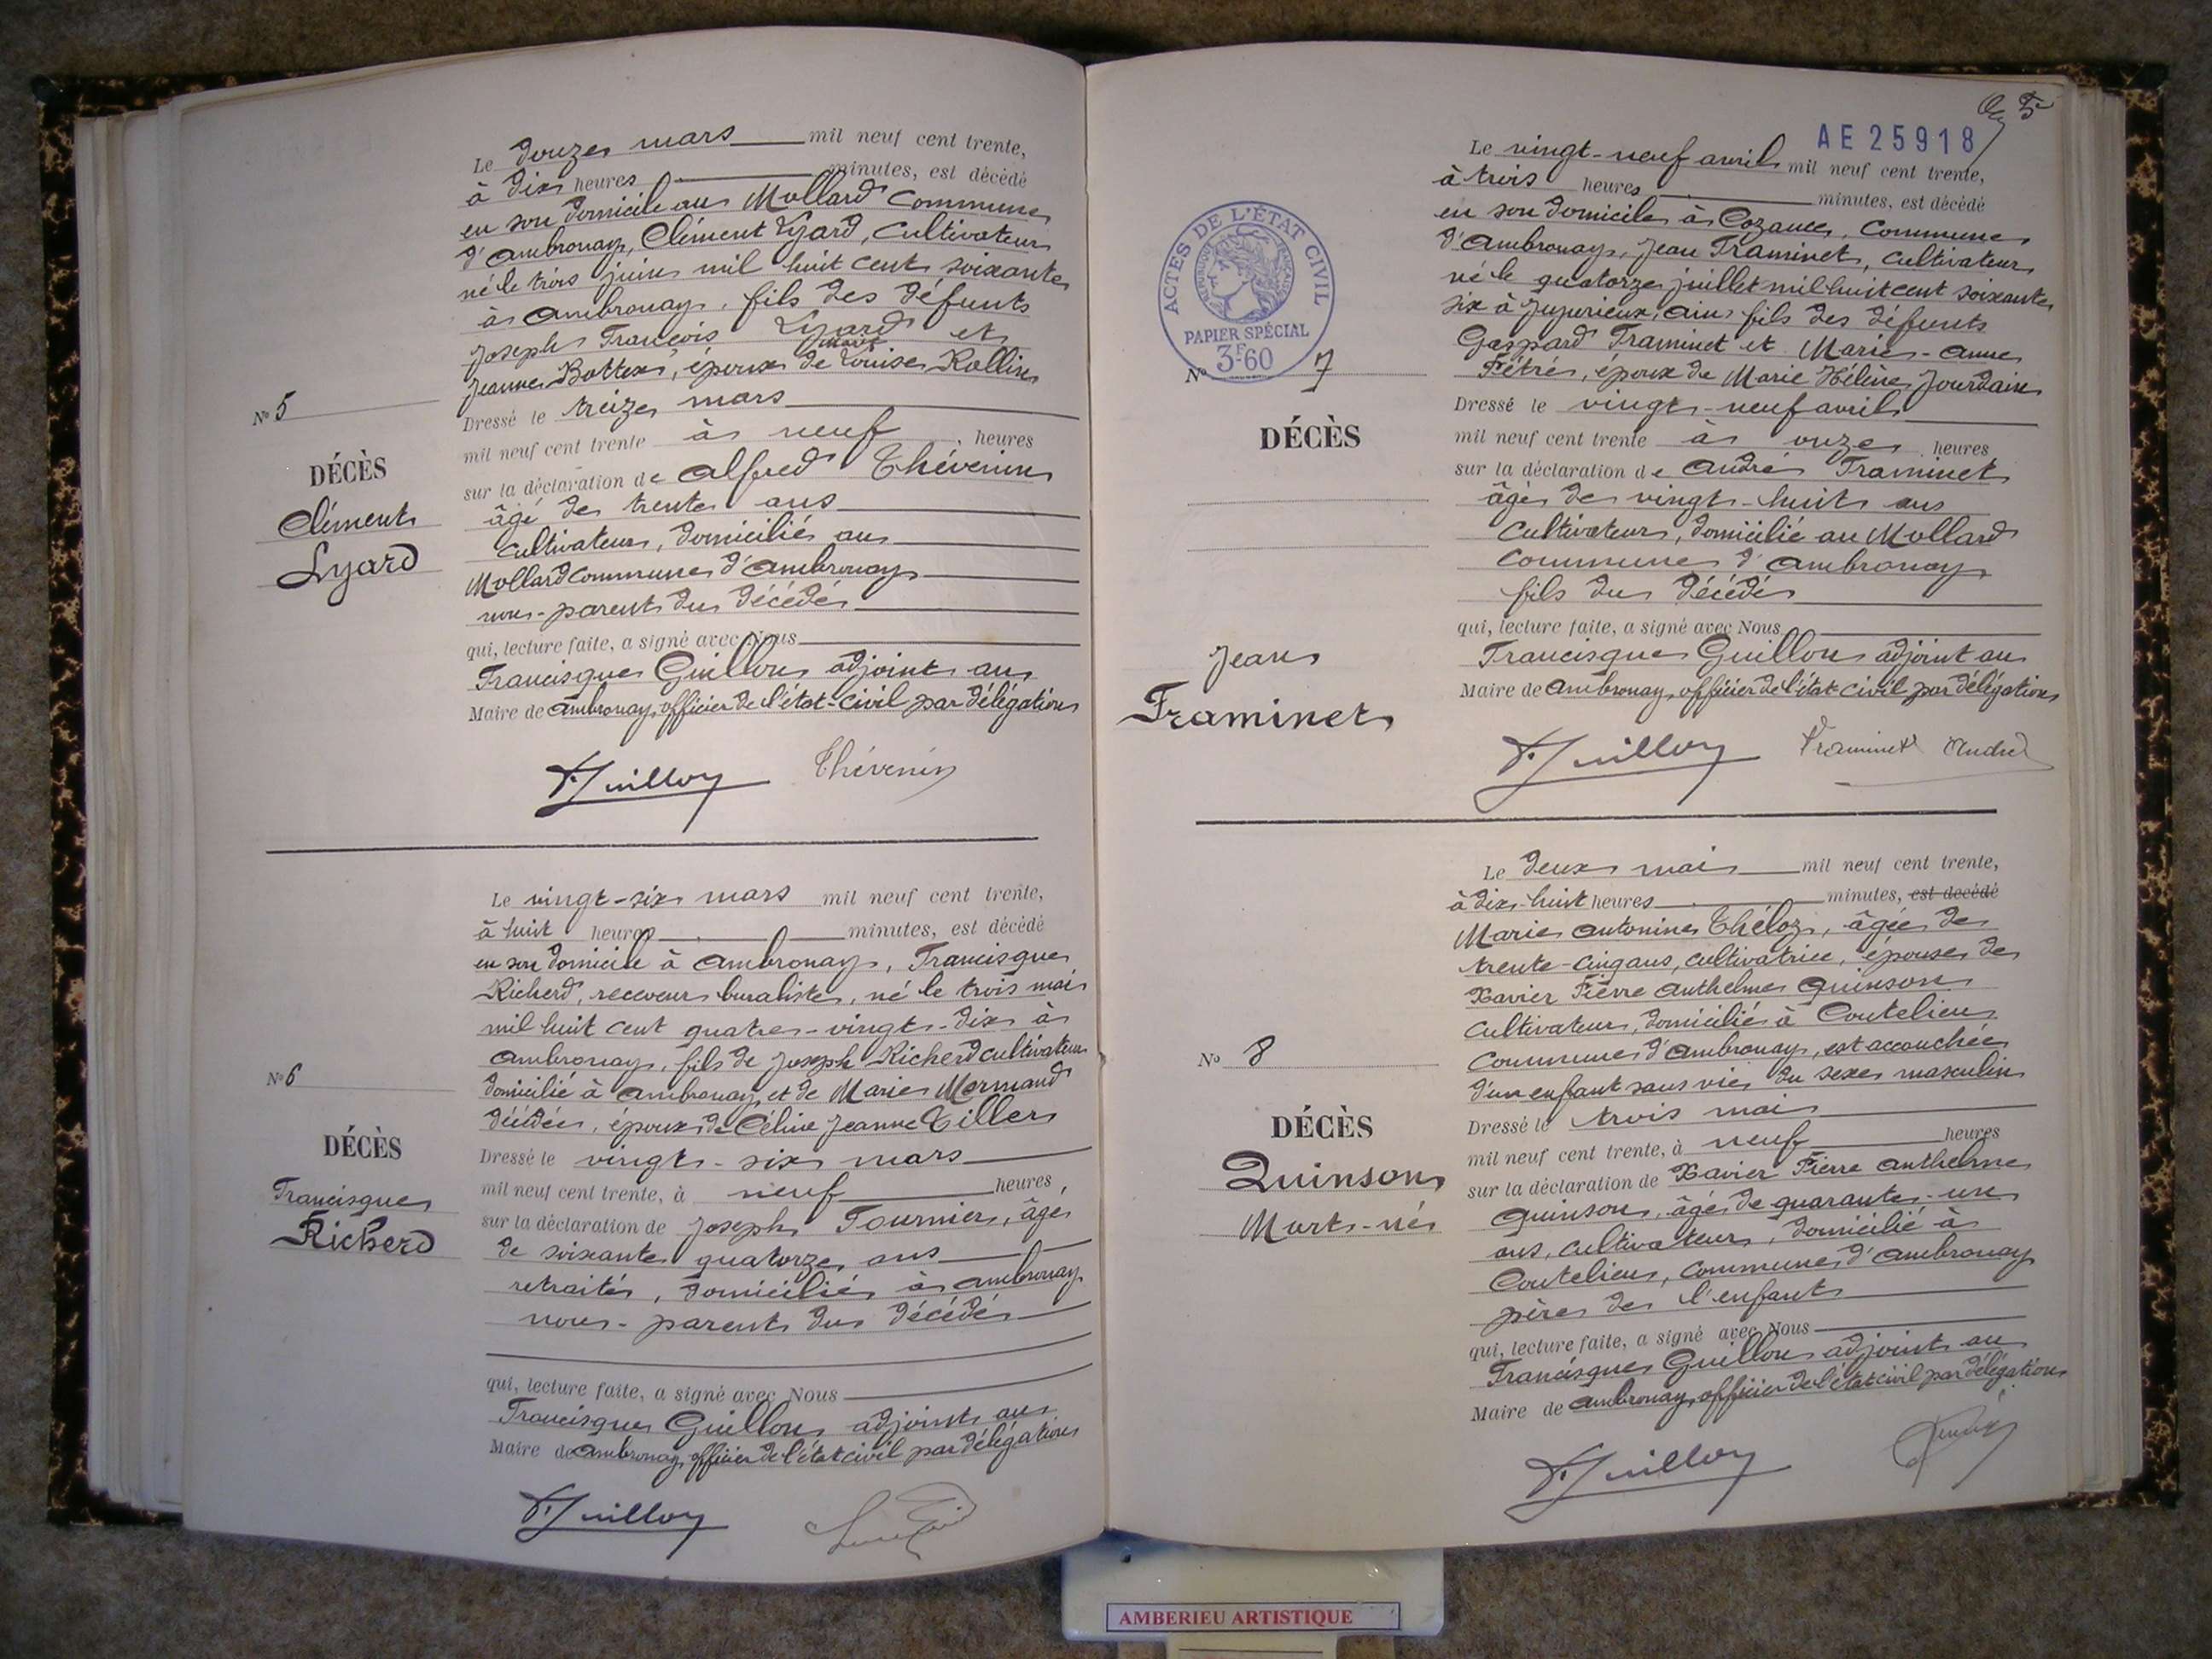 Le douze mars mil neuf cent trente,
à dix heures minutes, est décédé
en son domicile au Mollard Commune
d'Ambronay, Clément Lyard, cultivateur
né le trois juin mil huit cent soixante
à Ambronay, fils des défunts
Joseph François Lyard et
Jeanne Bottex, époux de Marie Louise Rollin
Dressé le treize mars
mil neuf cent trente à neuf heures
sur la déclaration de Alfred Thévenin
âgé de trente ans
cultivateur, domicilié au
Mollard commune d'Ambronay
non-parent du décédé
qui, lecture faite, a signé avec Nous
Francisque Guillon adjoint au
Maire de Ambronay, officier de l'état-civil par délégation
F. Guillon Thévenin
N° 5
DÉCÈS
Clément
Lyard
Le vingt-six mars mil neuf cent trente,
à huit heures minutes, est décédé
en son domicile à Ambronay, Francisque
Richerd, receveur buraliste, né le trois mai
mil huit cent quatre-vingt-dix à
Ambronay, fils de Joseph Richerd cultivateur
domicilié à Ambronay et de Marie Mermand
décédée, époux de Céline Jeanne Tiller
Dressé le vingt-six mars
mil neuf cent trente, à neuf heures,
sur la déclaration de Joseph Fournier, âgé
de soixante quatorze ans
retraité, domicilié à Ambronay
non-parent du décédé
qui, lecture faite, a signé avec Nous
Francisque Guillon adjoint au
Maire de Ambronay, officier de l'état civil par délégation
F. Guillon
N° 6
DÉCÈS
Francisque
Richerd
5
AE 25918
Le vingt-neuf avril mil neuf cent trente,
à trois heures minutes, est décédé
en son domicile à Cozance, Commune
d'Ambronay, Jean Framinet, cultivateur
né le quatorze juillet mil huit cent soixante
six à Jujurieux, Ain, fils des défunts
Gaspard Framinet et Marie-Anne
Pétré, époux de Marie Hélène Jourdain
Dressé le vingt-neuf avril
mil neuf cent trente à onze heures
sur la déclaration de André Framinet
âgé de vingt-huit ans
Cultivateur, domicilié au Mollard
Commune d'Ambronay
fils du décédé
qui, lecture faite, a signé avec Nous
Francisque Guillon adjoint au
Maire de Ambronay, officier de l'état-civil par délégation
F. Guillon Framinet André
ACTES DE L'ÉTAT CIVIL
RÉPUBLIQUE FRANÇAISE
PAPIER SPÉCIAL
3F60
N° 7
DÉCÈS
Jean
Framinet
Le deux mai mil neuf cent trente,
à dix-huit heures minutes, est décédé
Marie Antonine Théloz, âgée de
trente-cinq ans, cultivatrice, épouse de
Xavier Pierre Anthelme Quinson
cultivateur, domicilié à Coutelieu
Commune d'Ambronay, est accouchée
d'un enfant sans vie du sexe masculin
Dressé le trois mai
mil neuf cent trente, à neuf heures
sur la déclaration de Xavier Pierre Anthelme
Quinson, âgé de quarante-un
ans, cultivateur, domicilié à
Coutelieu, Commune d'Ambronay
père de l'enfant
qui, lecture faite, a signé avec Nous
Francisque Guillon adjoint au
Maire de Ambronay, officier de l'état civil par délégation
F. Guillon
N° 8
DÉCÈS
Quinson
Mort-né
AMBERIEU ARTISTIQUE